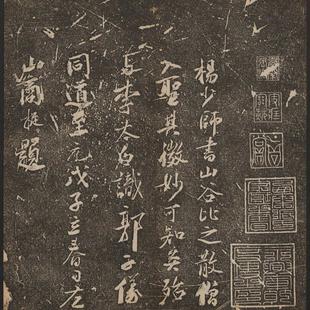 楊少師書山谷比之散僧
入聖其微妙可知矣殆
與李太白識郭子儀
同道至元戊子立春日左
山商挺題